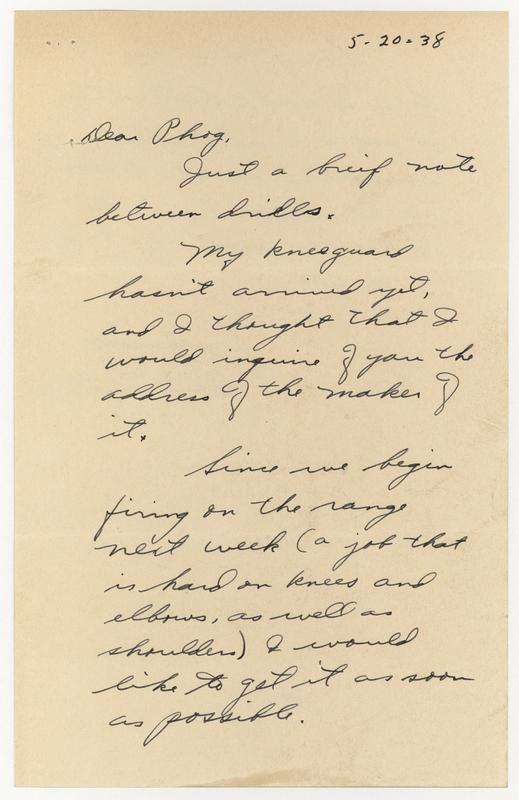 5-20-38
Dear Phog,
Just a brief note
between drills.
My kneeguard
hasn't arrived yet,
and I thought that I
would inquire of you the
address of the maker of
it.
Since we begin
firing on the range
next week (a job that
is hard on knees and
elbows, as well as
shoulders) I would
like to get it as soon
as possible.